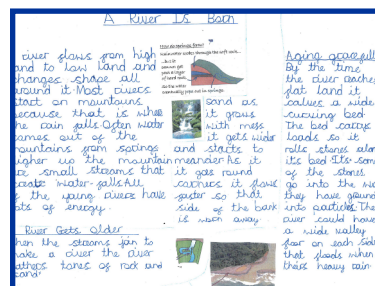 A River Is Born
river flows from high
and to low land and
changes shape all
around it. Most rivers
start on mountains
because that is where
the rain falls. Often water
comes out of the
mountains from springs
higher up the mountain
are small streams that
create water-falls. All
the young rivers have
lots of energy.
River Gets Older
When the streams join to
make a river the river
gathers tones of rock and
sand
How do springs form?
Rainwater water through the soft rock...
...but it
can not get
past a layer
of hard rock.
So the water
eventually pops out in springs.
sand as
it grows
with mess
it gets wider
and starts to
meander. As it
it goes round
corners it flows
faster so that
side of the bank
is worn away.
Aging gracefull
By the time
the river reaches
flat land it
calves a wide
curving bed.
The bed carrys
loads so it
rolls stones along
it's bed. It's som
of the stones
go into the we
they have ground
into particles. The
river could have
a wide valley
floor on each side
that floods when
theirs heavy rain